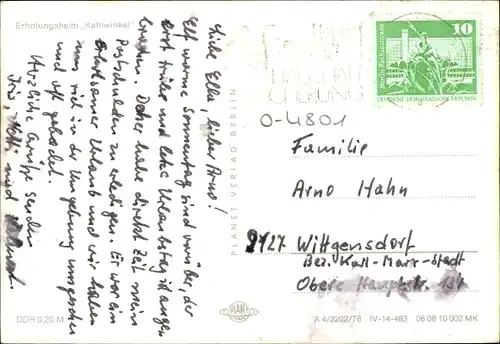 Erholungsheim „Kahlwinkel"
Liebe Ella, lieber Arno!
Elf warme Sonnentag sind vorüber, der
erst trüber und letzte Urlaubstag ist angebrochen.
Daher habe direkt Zeit mein
Postschulden zu erledigen. Er war ein
erholsamer Urlaub und wir haben
uns viel in der Umgebung umgesehen
und oft gebadet.
Herzliche Grüße senden
und
PLANET VERLAG BERLIN
HAUSHALT
10
DEUTSCHE DEMOKRATISCHE REPUBLIK
O-4801
Familie
Arno Hahn
9127 Wittgensdorf
Bez. Karl-Marx-Stadt
Obere Hauptstr.
DDR 0,20 M
A 4/2202/78 IV-14-483 06 08 10 002 MK